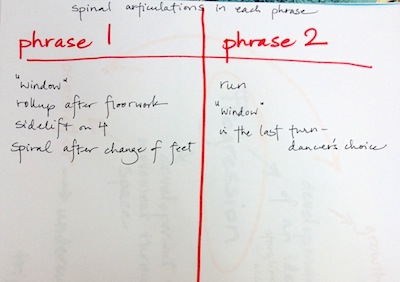 spinal articulations in each phrase
phrase 1
"window"
rollup after floorwork
sidelift on 4
spiral after change of feet
phrase 2
run
"window"
in the last turn-
dancer's choice